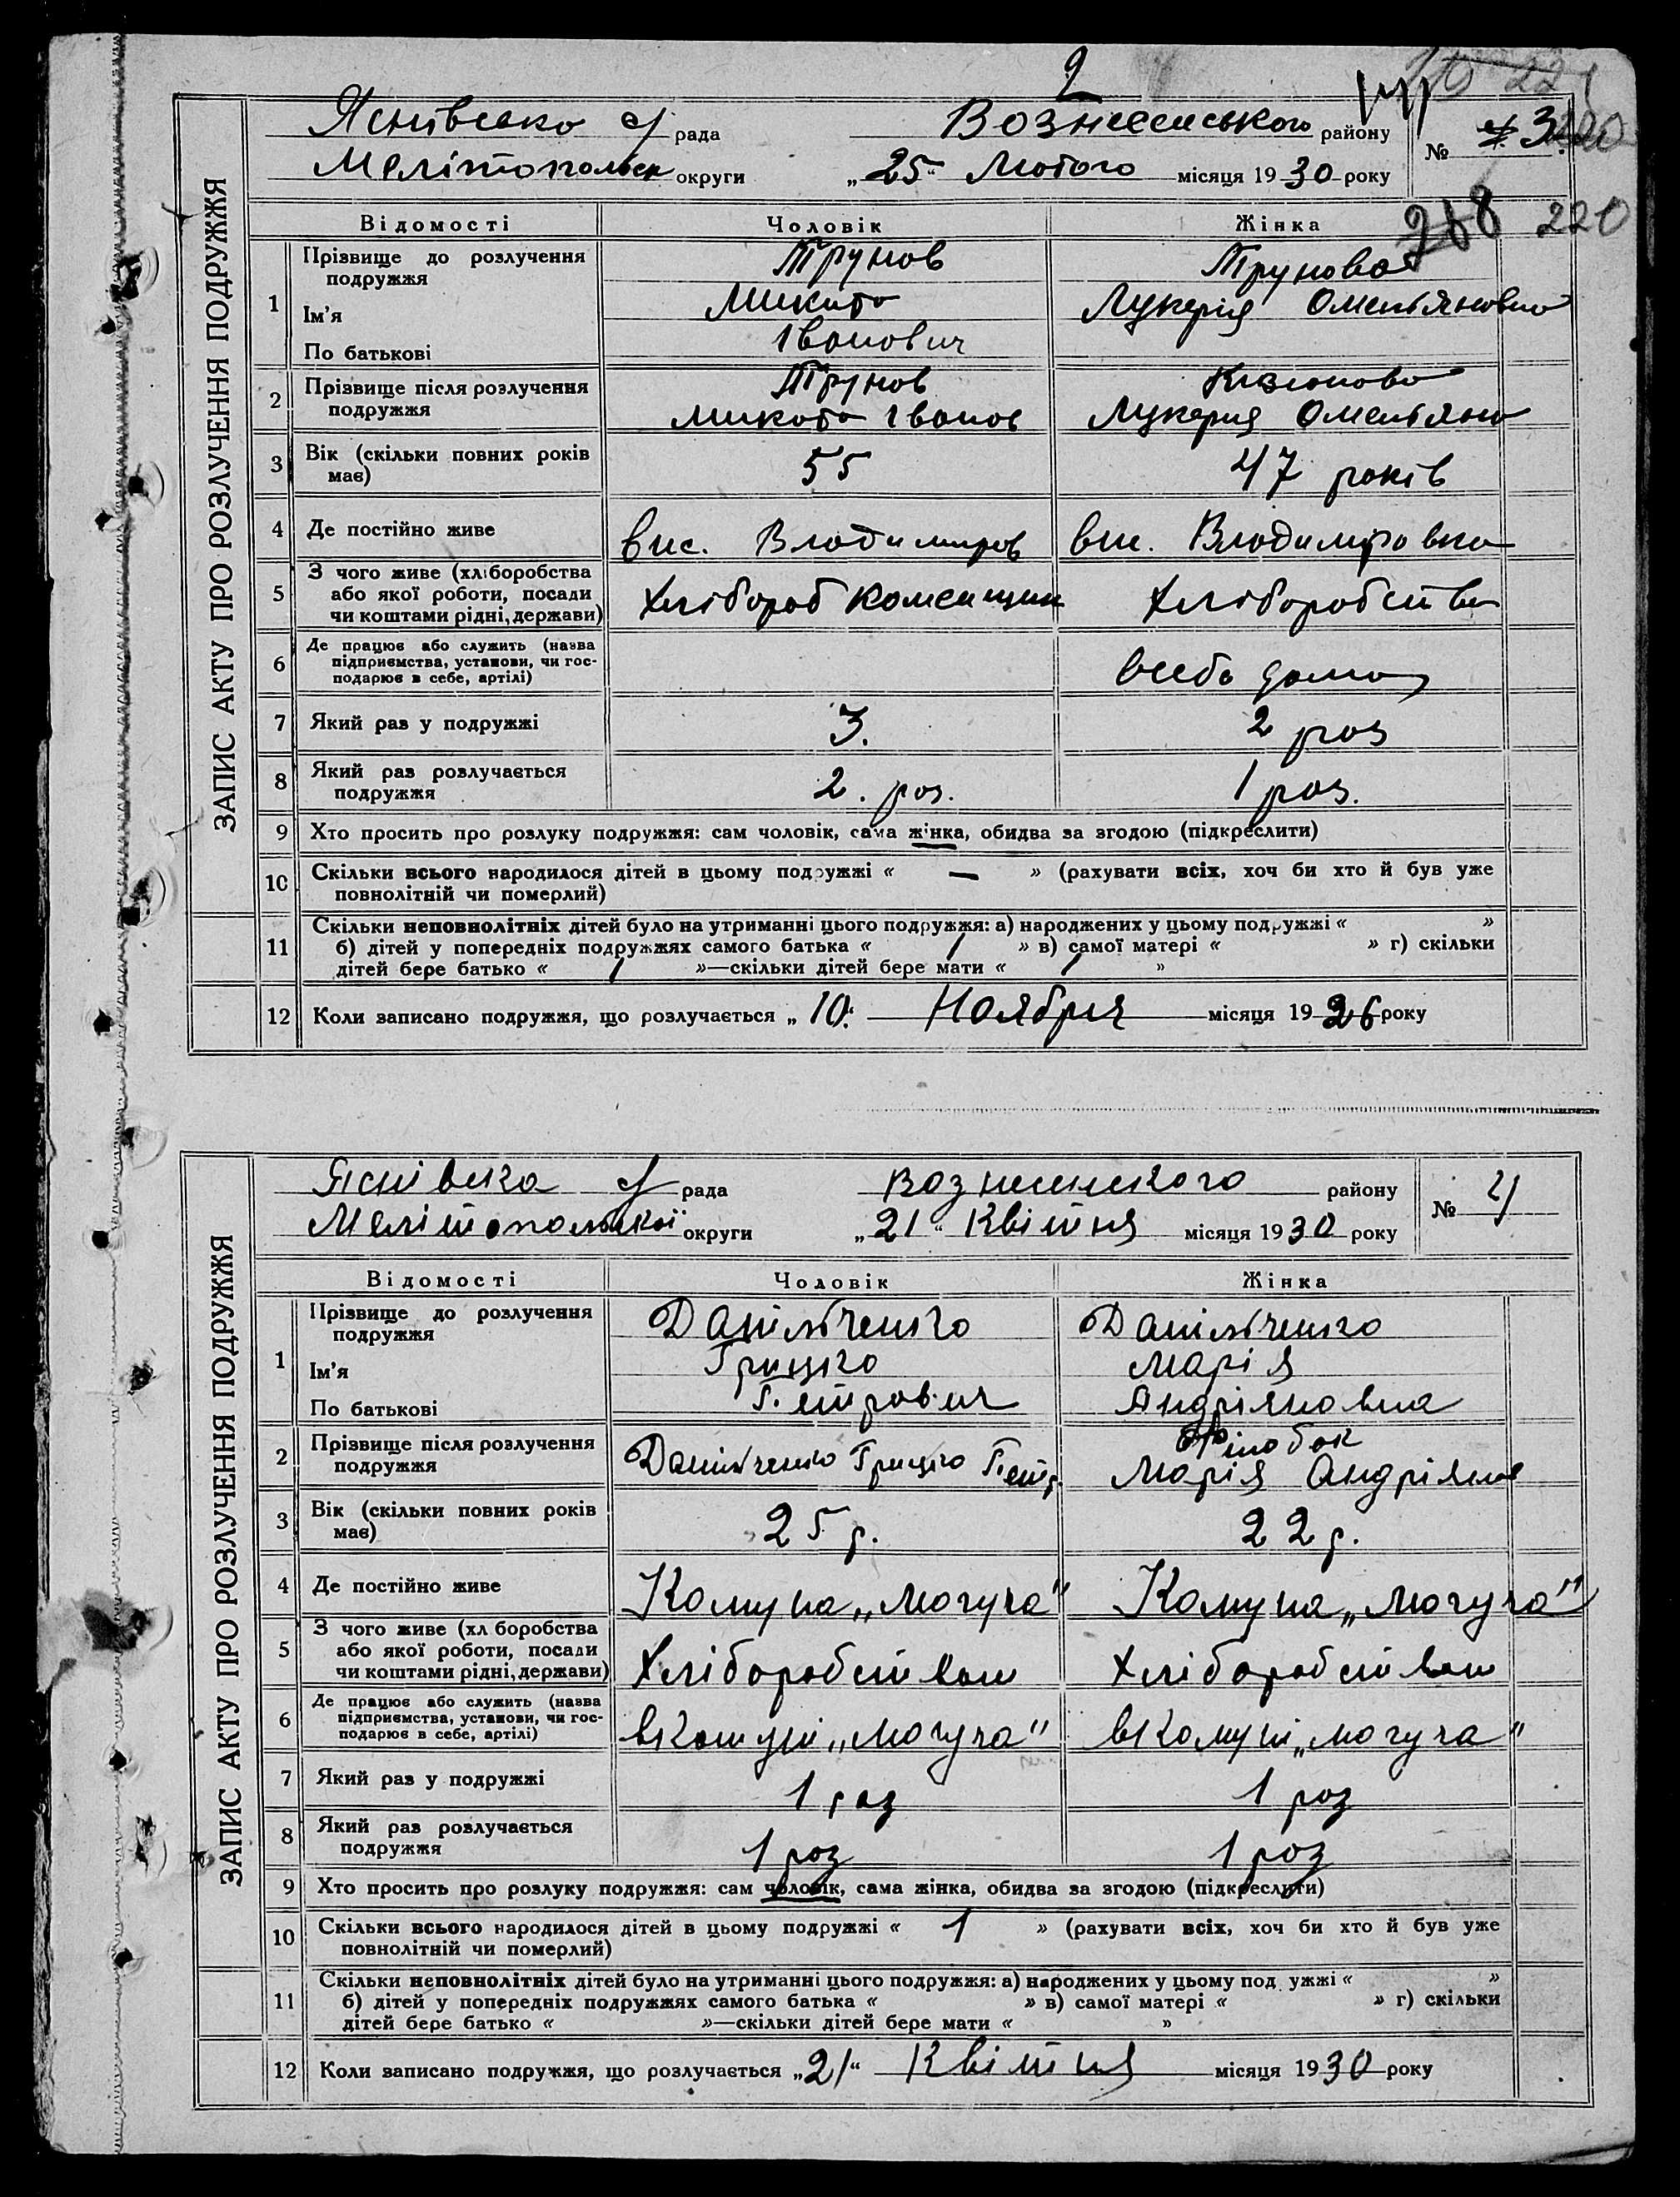 2
ЗАПИС АКТУ ПРО РОЗЛУЧЕННЯ ПОДРУЖЖЯ
Яснівсько с/ рада Вознесенського району № 3
Мелітопольск округи „25“ Лютого місяця 1930 року
218 220
Відомості Чоловік Жінка
1 Прізвище до розлучення подружжя Трунов Трунова
Ім'я Микита Лукерія Омельяновна
По батькові Іванович
2 Прізвище після розлучення подружжя Трунов
Микита Іванов Лукерия Омельяно
3 Вік (скільки повних років має) 55 47 років
4 Де постійно живе вис. Владимиров вис. Владимировка
5 З чого живе (хліборобства або якої роботи, посади чи коштами рідні, держави) Хлібороб Хліборобств
6 Де працює або служить (назва підприємства, установи, чи господарює в себе, артілі) всебе дома
7 Який раз у подружжі 3. 2 раз
8 Який раз розлучається подружжя 2. раз. 1 раз.
9 Хто просить про розлуку подружжя: сам чоловік, сама жінка, обидва за згодою (підкреслити)
10 Скільки всього народилося дітей в цьому подружжі « — » (рахувати всіх, хоч би хто й був уже
повнолітній чи померлий)
11 Скільки неповнолітніх дітей було на утриманні цього подружжя: а) народжених у цьому подружжі « »
б) дітей у попередніх подружжях самого батька « / » в) самої матері « » г) скільки
дітей бере батько « / »—скільки дітей бере мати « / »
12 Коли записано подружжя, що розлучається „10.“ Ноября місяця 1926 року
ЗАПИС АКТУ ПРО РОЗЛУЧЕННЯ ПОДРУЖЖЯ
Яснівска с/ рада Вознесенского району № 4
Мелітопольскої округи „21“ Квітня місяця 1930 року
Відомості Чоловік Жінка
1 Прізвище до розлучення подружжя Данільченко Данільченко
Ім'я Грицко Марія
По батькові Петрович Андріяновна
2 Прізвище після розлучення подружжя Данільченко Грицко Петр.
Марія Андріяно
3 Вік (скільки повних років має) 25 р. 22 р.
4 Де постійно живе Комуна „Могуча“ Комуна „Могуча“
5 З чого живе (хліборобства або якої роботи, посади чи коштами рідні, держави) Хліборобством Хліборобством
6 Де працює або служить (назва підприємства, установи, чи господарює в себе, артілі) вКомуні „Могуча“ вКомуні „Могуча“
7 Який раз у подружжі 1 раз 1 роз
8 Який раз розлучається подружжя 1 роз 1 роз
9 Хто просить про розлуку подружжя: сам чоловік, сама жінка, обидва за згодою (підкреслити)
10 Скільки всього народилося дітей в цьому подружжі « 1 » (рахувати всіх, хоч би хто й був уже
повнолітній чи померлий)
11 Скільки неповнолітніх дітей було на утриманні цього подружжя: а) народжених у цьому подружжі « »
б) дітей у попередніх подружжях самого батька « » в) самої матері « » г) скільки
дітей бере батько « »—скільки дітей бере мати « »
12 Коли записано подружжя, що розлучається „21“ Квітня місяця 1930 року